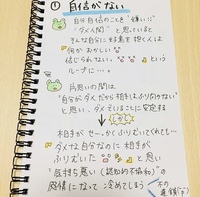 ① 自信がない
自分自信のことを"嫌い"
"ダメ人間"と思っていると
そんな自分に好意を抱く人は
何かおかしい
信じられない。 という
ループに…。
片思いの間は
"自分がダメだから相手もふり向かない"
と思い、ダメでいることに安定する
しかし
相手がせーっかくふりむいてくれて…
ダメな自分なのに相手が
ふりむいた と思い
気持ち悪い(認知的不協和)の
感情になって冷めてしまう